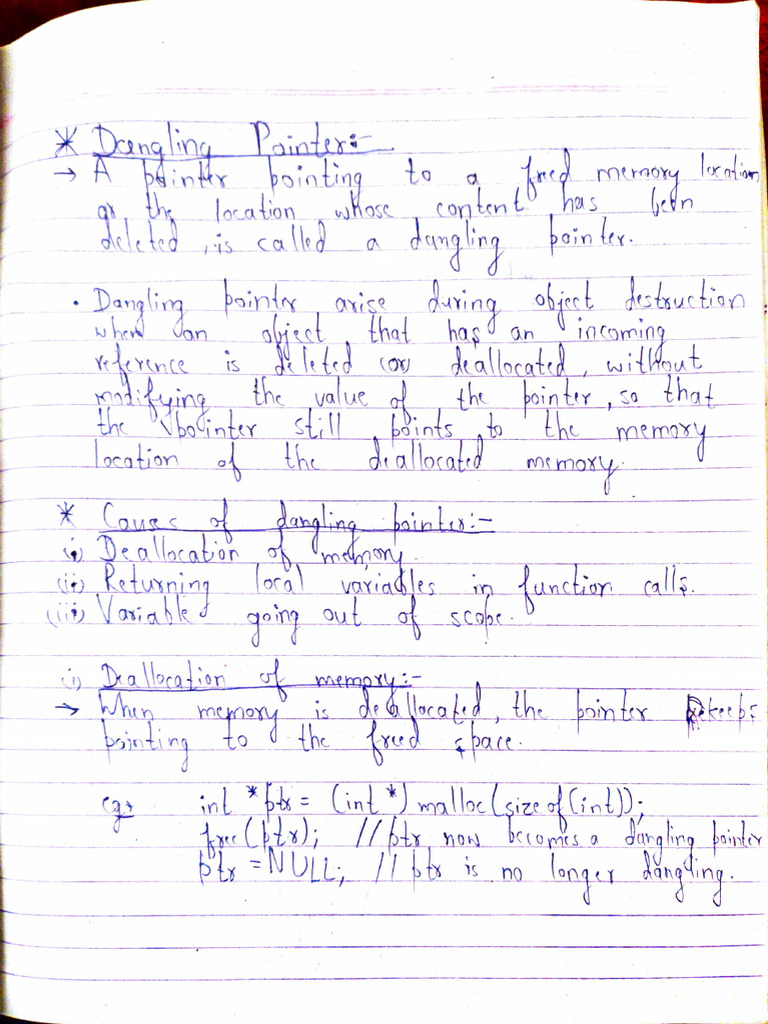 * Dangling Pointer:-
→ A pointer pointing to a freed memory location
or the location whose content has been
deleted, is called a dangling pointer.
• Dangling pointer arise during object destruction
when an object that has an incoming
reference is deleted (or) deallocated, without
modifying the value of the pointer, so that
the pointer still points to the memory
location of the deallocated memory.
* Causes of dangling pointer:-
(i) Deallocation of memory.
(ii) Returning local variables in function calls.
(iii) Variable going out of scope.
(i) Deallocation of memory:-
→ When memory is deallocated, the pointer keeps
pointing to the freed space.
eg: int *ptr = (int *) malloc(sizeof(int));
free(ptr); // ptr now becomes a dangling pointer
ptr = NULL; // ptr is no longer dangling.